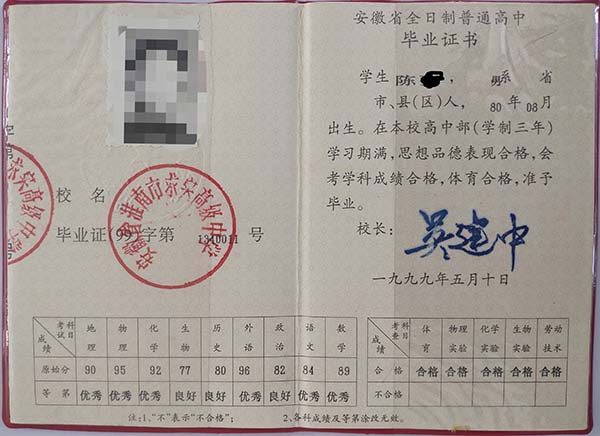 校 名
安徽省淮南市荣荣高级中学
毕业证(99)字第 1340011 号
安徽省全日制普通高中
毕业证书
学生 陈 , 男 系 省
市、县(区)人, 80 年 08 月
出生。在本校高中部(学制三年)
学习期满,思想品德表现合格,会
考学科成绩合格,体育合格,准予
毕业。
校长: 吴建中
一九九九年五月十日
成绩 考试科目 地理 物理 化学 生物 历史 外语 政治 语文 数学
原始分 90 95 92 77 80 96 82 84 89
等 第 优秀 优秀 优秀 良好 良好 优秀 良好 优秀 优秀
成绩 考查科目 体育 物理实验 化学实验 生物实验 劳动技术
合 格 合格 合格 合格 合格 合格
不合格
注:1、“不”表示“不合格”; 2、各科成绩及等第涂改无效。